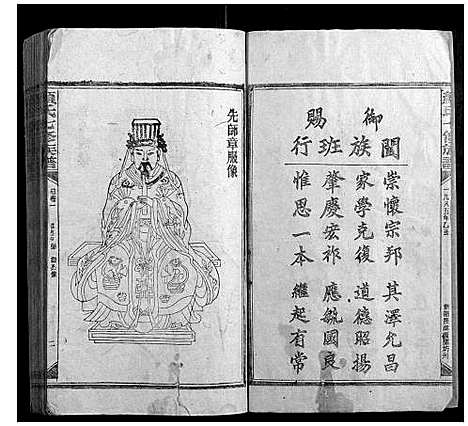 御賜
闔族班行
崇懷宗邦 其澤允昌
家學克復 道德昭揚
肇慶宏祚 應毓國良
惟思一本 繼起有常
先師章服像
顏氏七修族譜